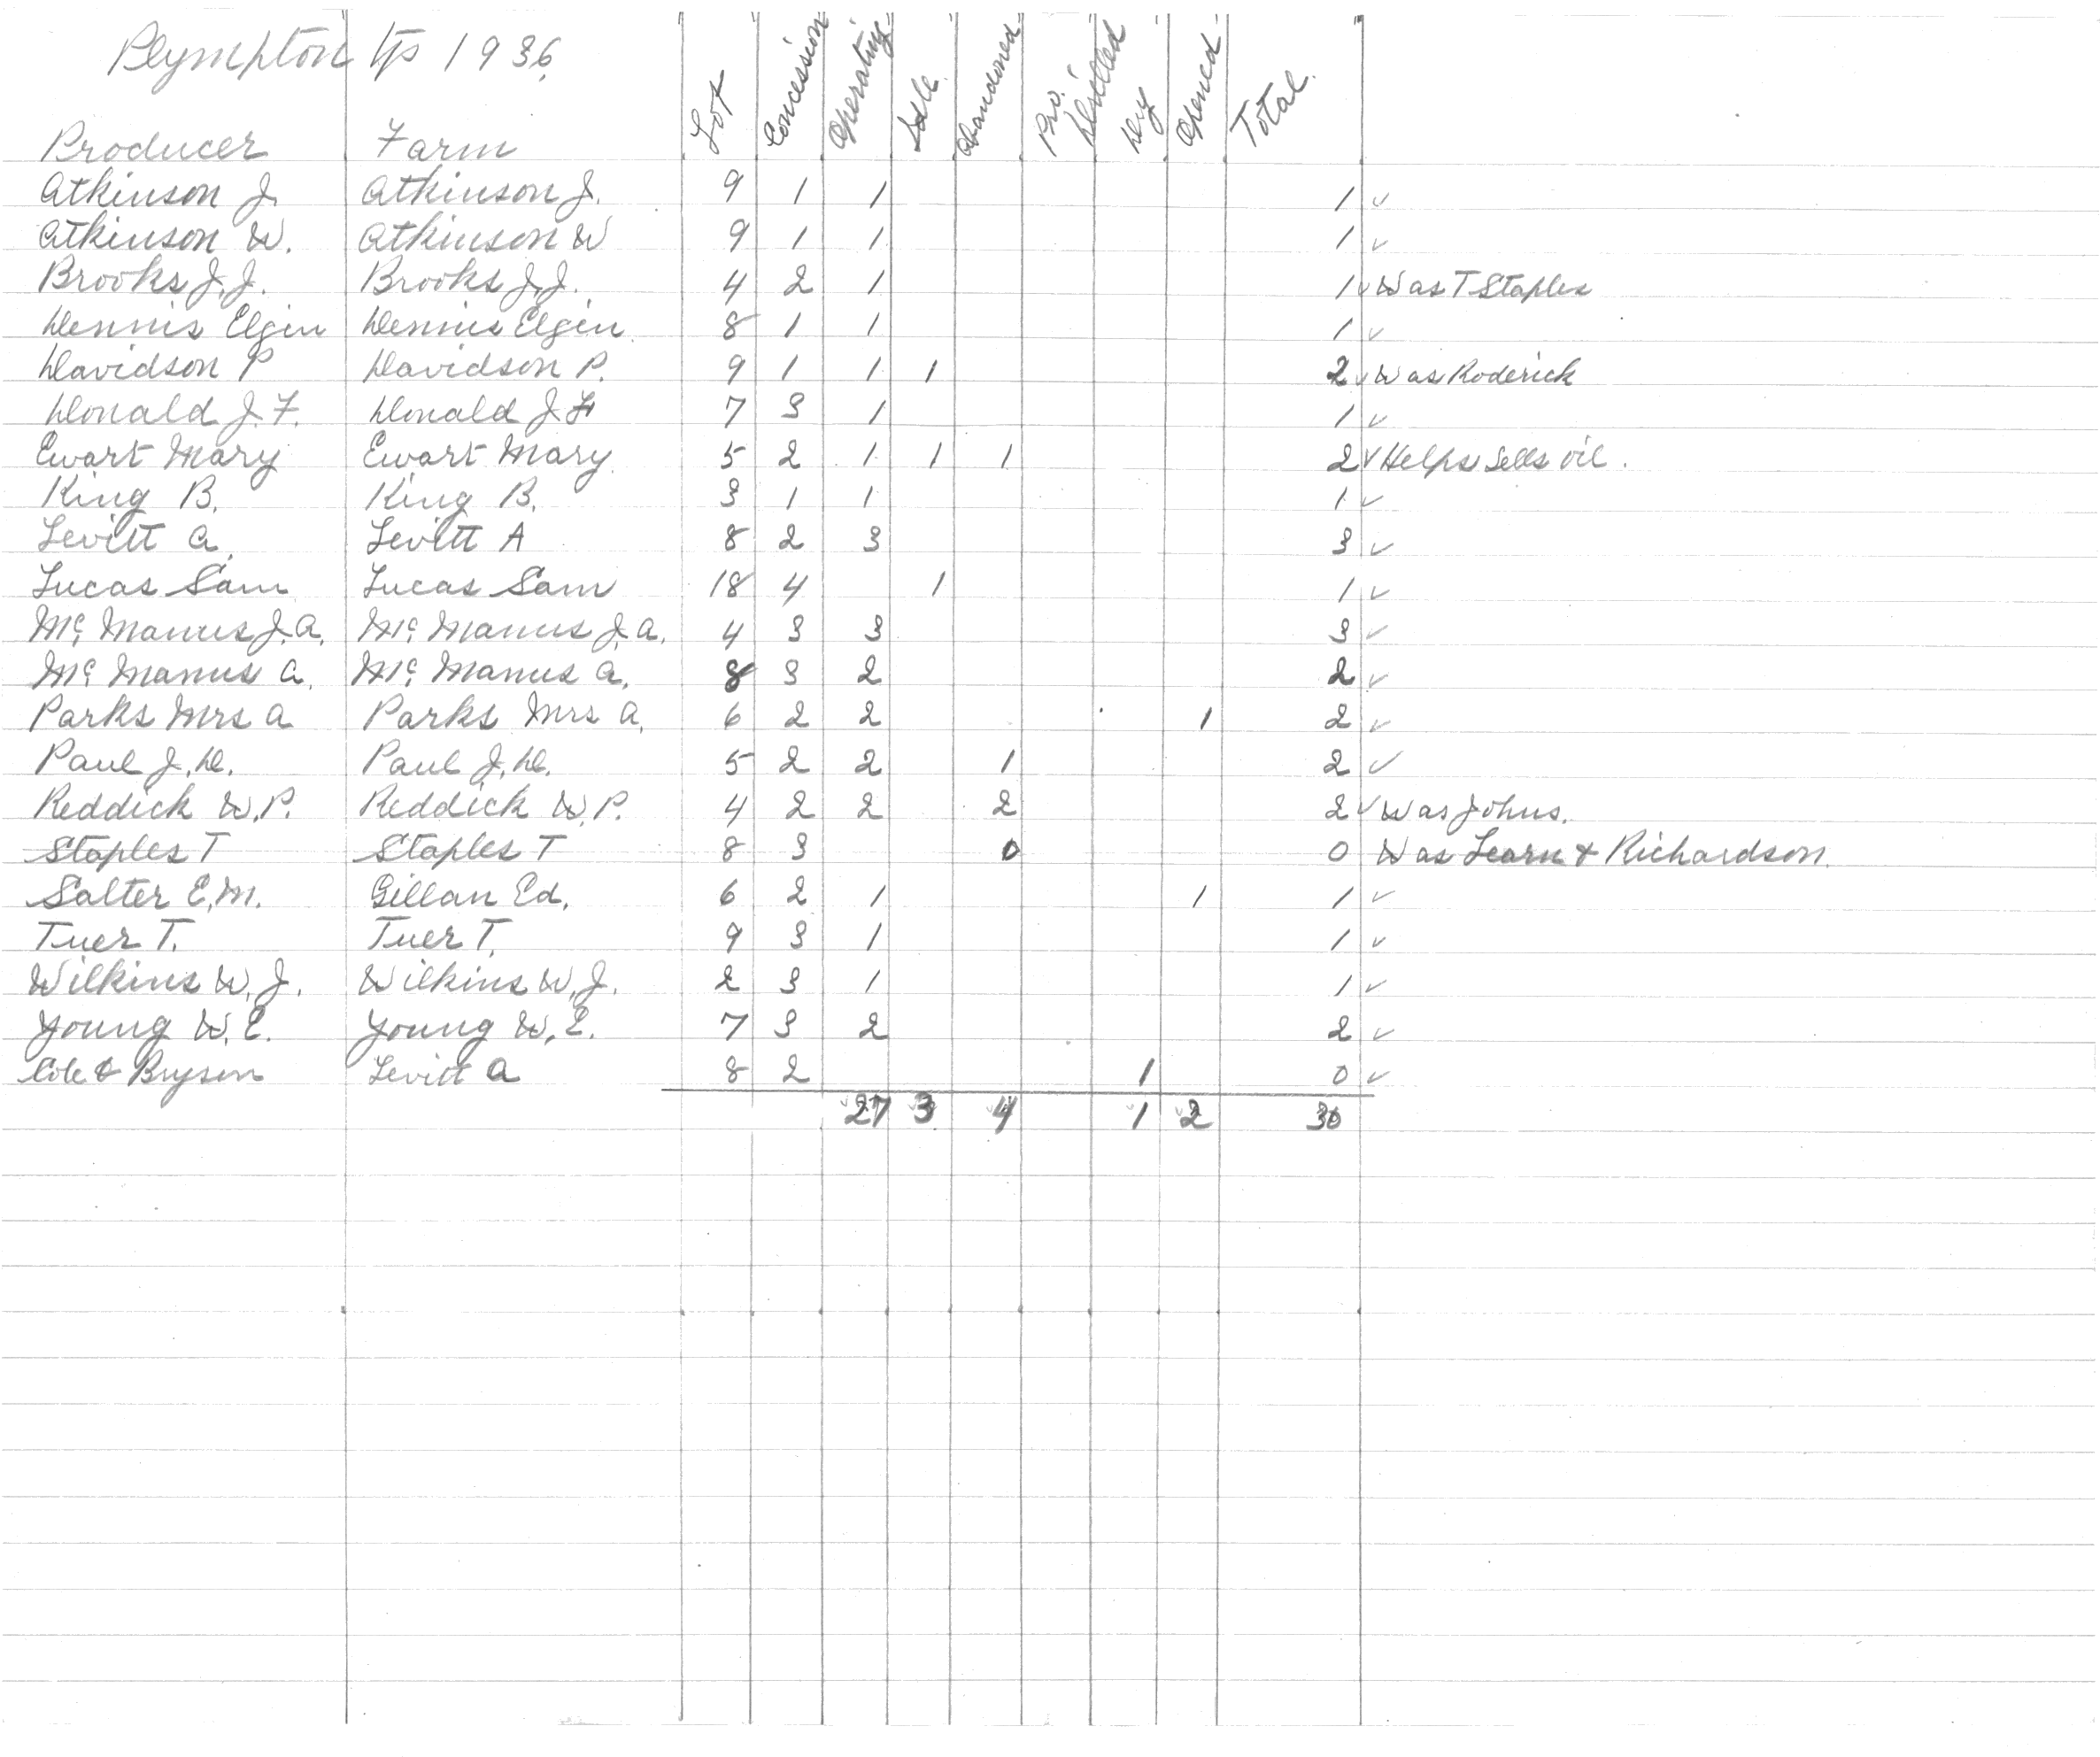 Plympton Tp 1936
Producer Farm Lot Concession Operating Idle Abandoned Pro. Drilled Dry Opened Total
Atkinson J. Atkinson J. 9 1 1 1 ✓
Atkinson W. Atkinson W 9 1 1 1 ✓
Brooks J.J. Brooks J.J. 4 2 1 1 ✓ Was T Staples
Dennis Elgin Dennis Elgin 8 1 1 1 ✓
Davidson P Davidson P. 9 1 1 1 2 ✓ Was Roderick
Donald J.F. Donald J F 7 3 1 1 ✓
Ewart Mary Ewart Mary 5 2 1 1 1 2 ✓ Helps sells oil.
King B. King B. 3 1 1 1 ✓
Levitt A. Levitt A 8 2 3 3 ✓
Lucas Sam Lucas Sam 18 4 1 1 ✓
Mc Manus J.A. Mc Manus J.A. 4 3 3 3 ✓
Mc Manus A. Mc Manus A. 8 3 2 2 ✓
Parks Mrs A Parks Mrs A. 6 2 2 1 2 ✓
Paul J.D. Paul J.D. 5 2 2 1 2 ✓
Reddick W.P. Reddick W.P. 4 2 2 2 2 ✓ Was Johns.
Staples T Staples T 8 3 0 0 Was Learn & Richardson.
Salter E.M. Gillan Ed. 6 2 1 1 1 ✓
Tuer T. Tuer T. 9 3 1 1 ✓
Wilkins W.J. Wilkins W.J. 2 3 1 1 ✓
Young W.E. Young W.E. 7 3 2 2 ✓
Cole & Bryson Levitt A 8 2 1 0 ✓
✓27 ✓3 ✓4 ✓1 ✓2 30